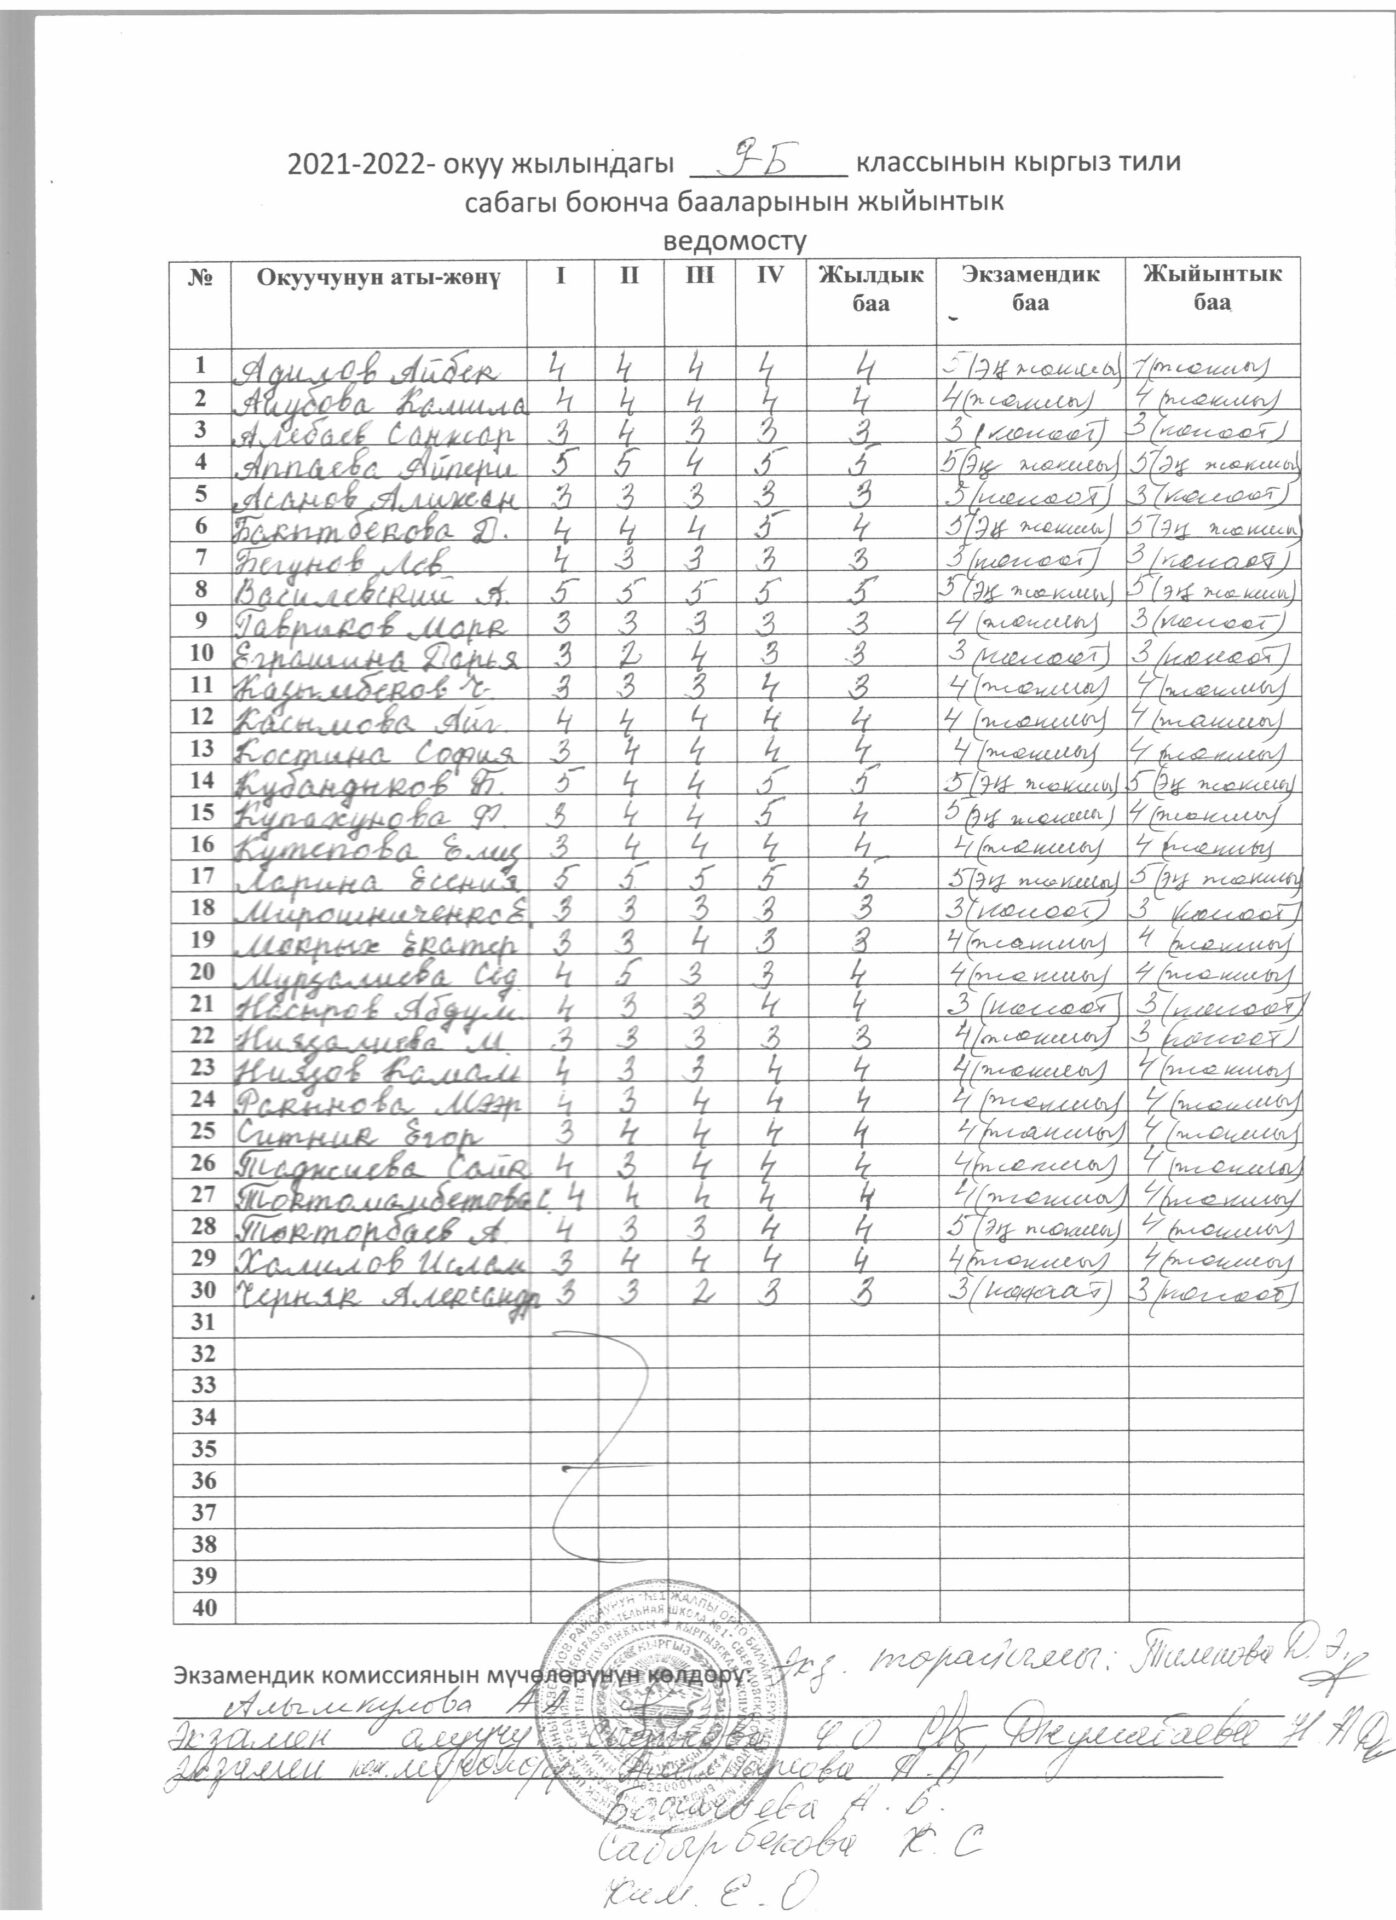 2021-2022- окуу жылындагы 9-Б классынын кыргыз тили
сабагы боюнча бааларынын жыйынтык
ведомосту
№ Окуучунун аты-жөнү I II III IV Жылдык баа Экзамендик баа Жыйынтык баа
1 Адилов Айбек 4 4 4 4 4 5 (эң жакшы) (жакшы)
2 Аюубова Камила 4 4 4 4 4 4 (жакшы) 4 (жакшы)
3 Алебаев Санжар 3 4 3 3 3 3 (канаат) 3 (канаат)
4 Аппаева Айпери 5 5 4 5 5 5 (эң жакшы) 5 (эң жакшы)
5 Асанов Алижан 3 3 3 3 3 3 (канаат) 3 (канаат)
6 Бакытбекова Д. 4 4 4 5 4 5 (эң жакшы) 5 (эң жакшы)
7 Бегунов Лев 4 3 3 3 3 3 (канаат) 3 (канаат)
8 Василевский А. 5 5 5 5 5 5 (эң жакшы) 5 (эң жакшы)
9 Гавриков Марк 3 3 3 3 3 4 (жакшы) 3 (канаат)
10 Еграшина Дарья 3 2 4 3 3 3 (канаат) 3 (канаат)
11 Казымбеков Ч. 3 3 3 4 3 4 (жакшы) 4 (жакшы)
12 Касымова Айг. 4 4 4 4 4 4 (жакшы) 4 (жакшы)
13 Костина София 3 4 4 4 4 4 (жакшы) 4 (жакшы)
14 Кубандыков Б. 5 4 4 5 5 5 (эң жакшы) 5 (эң жакшы)
15 Купахунова Ф. 3 4 4 5 4 5 (эң жакшы) 4 (жакшы)
16 Кутепова Елиз 3 4 4 4 4 4 (жакшы) 4 (жакшы)
17 Ларина Есения 5 5 5 5 5 5 (эң жакшы) 5 (эң жакшы)
18 Мирошниченко Е. 3 3 3 3 3 3 (канаат) 3 (канаат)
19 Мокрых Екатер 3 3 4 3 3 4 (жакшы) 4 (жакшы)
20 Мурзалиева Сед. 4 5 3 3 4 4 (жакшы) 4 (жакшы)
21 Насыров Абдум. 4 3 3 4 4 3 (канаат) 3 (канаат)
22 Ниязалиева М. 3 3 3 3 3 4 (жакшы) 3 (канаат)
23 Ниязов Камал 4 3 3 4 4 4 (жакшы) 4 (жакшы)
24 Ракынова Мээр 4 3 4 4 4 4 (жакшы) 4 (жакшы)
25 Ситник Егор 3 4 4 4 4 4 (жакшы) 4 (жакшы)
26 Таджиева Саик 4 3 4 4 4 4 (жакшы) 4 (жакшы)
27 Токтомамбетова С. 4 4 4 4 4 4 (жакшы) 4 (жакшы)
28 Токторбаев А. 4 3 3 4 4 5 (эң жакшы) 4 (жакшы)
29 Халилов Ислам 3 4 4 4 4 4 (жакшы) 4 (жакшы)
30 Черняк Александр 3 3 2 3 3 3 (канаат) 3 (канаат)
31
32
33
34
35
36
37
38
39
40
Экзамендик комиссиянын мүчөлөрүнүн колдору: Экз. төрайымы: Тилекова Д. Э.
Алымкулова А.
Экзамен алуучу Ч О Джумабаева Н. А
Экзамен ком. мүчөлөрү А. А
А. Б.
Сабырбекова К. С
Ким. Е. О